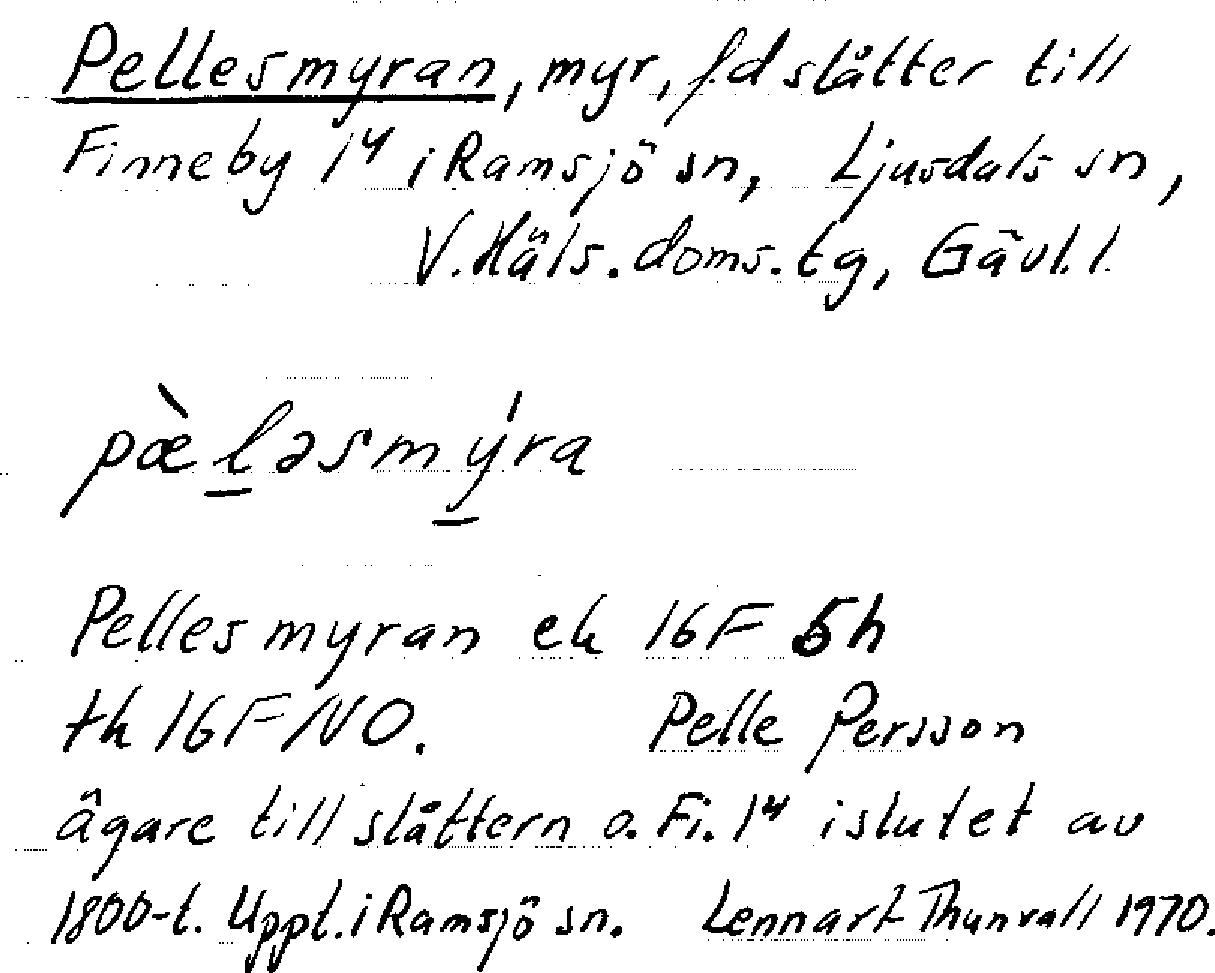 Pellesmyran, myr, f.d slåtter till
Finneby 1⁴ i Ramsjö sn, Ljusdals sn,
V. Häls. doms. tg, Gävl. l.
pæ̀l̠əsmý̠ra
Pellesmyran ek 16F 5h
tk 16F NO. Pelle Persson
ägare till slåttern o. Fi. 1⁴ i slutet av
1800-t. Uppt. i Ramsjö sn. Lennart Thunvall 1970.